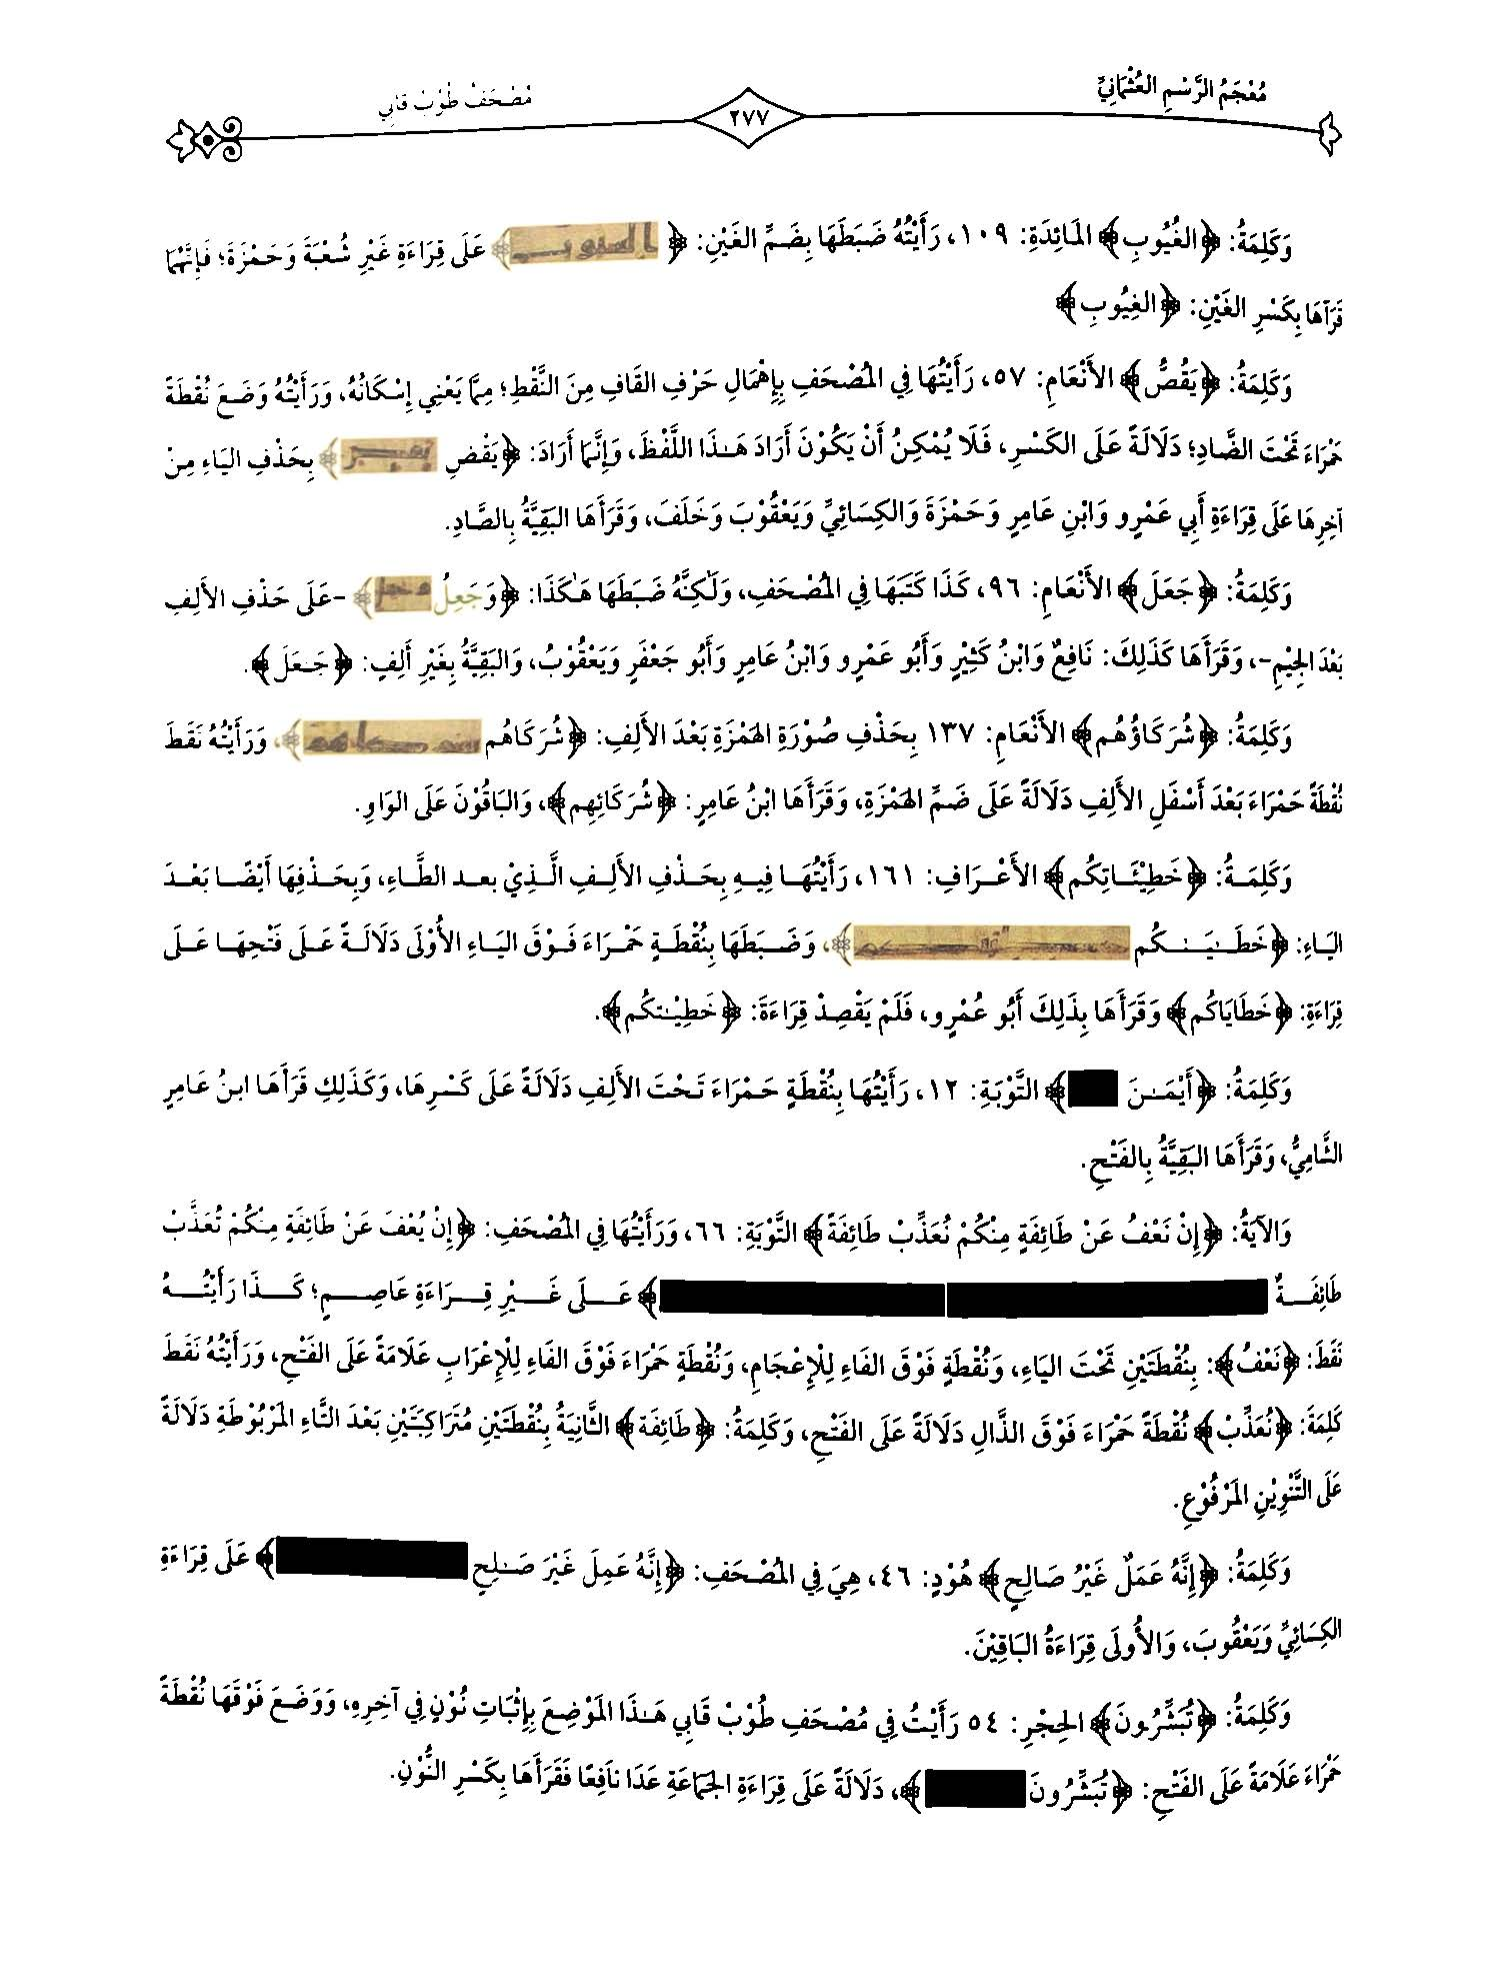 مُعْجَمُ الرَّسْمِ العُثْمَانِيِّ
٢٧٧
مُصْحَفُ طُوْبْ قَابِي
وَكَلِمَةُ: ﴿الغُيُوبِ﴾ المَائِدَةِ: ١٠٩، رَأَيْتُهُ ضَبَطَهَا بِضَمِّ الغَيْنِ: ﴿ ﴾ عَلَى قِرَاءَةِ غَيْرِ شُعْبَةَ وَحَمْزَةَ؛ فَإِنَّهُمَا
قَرَآهَا بِكَسْرِ الغَيْنِ: ﴿الغِيُوبِ﴾
وَكَلِمَةُ: ﴿يَقُصُّ﴾ الأَنْعَامِ: ٥٧، رَأَيْتُهَا فِي المُصْحَفِ بِإِهْمَالِ حَرْفِ القَافِ مِنَ النَّقْطِ؛ مِمَّا يَعْنِي إِسْكَانُهُ، وَرَأَيْتُهُ وَضَعَ نُقْطَةً
حَمْرَاءَ تَحْتَ الضَّادِ؛ دَلَالَةً عَلَى الكَسْرِ، فَلَا يُمْكِنُ أَنْ يَكُوْنَ أَرَادَ هَـٰذَا اللَّفْظَ، وَإِنَّمَا أَرَادَ: ﴿يَقْضِ ﴾ بِحَذْفِ اليَاءِ مِنْ
آخِرِهَا عَلَى قِرَاءَةِ أَبِي عَمْرٍو وَابْنِ عَامِرٍ وَحَمْزَةَ وَالكِسَائِيِّ وَيَعْقُوْبَ وَخَلَفَ، وَقَرَأَهَا البَقِيَّةُ بِالصَّادِ.
وَكَلِمَةُ: ﴿جَعَلَ﴾ الأَنْعَامِ: ٩٦، كَذَا كَتَبَهَا فِي المُصْحَفِ، وَلَكِنَّهُ ضَبَطَهَا هَـٰكَذَا: ﴿وَجَعِلُ ﴾ -عَلَى حَذْفِ الأَلِفِ
بَعْدَ الجِيْمِ-، وَقَرَأَهَا كَذَلِكَ: نَافِعٌ وَابْنُ كَثِيْرٍ وَأَبُو عَمْرٍو وَابْنُ عَامِرٍ وَأَبُو جَعْفَرٍ وَيَعْقُوْبُ، وَالبَقِيَّةُ بِغَيْرِ أَلِفٍ: ﴿جَعَلَ﴾.
وَكَلِمَةُ: ﴿شُرَكَاؤُهُم﴾ الأَنْعَامِ: ١٣٧ بِحَذْفِ صُوْرَةِ الهَمْزَةِ بَعْدَ الأَلِفِ: ﴿شُرَكَاهُم ﴾، وَرَأَيْتُهُ نَقَطَ
نُقْطَةً حَمْرَاءَ بَعْدَ أَسْفَلِ الأَلِفِ دَلَالَةً عَلَى ضَمِّ الهَمْزَةِ، وَقَرَأَهَا ابْنُ عَامِرٍ: ﴿شُرَكَائِهِم﴾، وَالبَاقُوْنَ عَلَى الوَاوِ.
وَكَلِمَةُ: ﴿خَطِيْئَاتِكُم﴾ الأَعْرَافِ: ١٦١، رَأَيْتُهَا فِيهِ بِحَذْفِ الأَلِفِ الَّذِيْ بعد الطَّاءِ، وَبِحَذْفِهَا أَيْضًا بَعْدَ
اليَاءِ: ﴿خَطَـٰيَـٰكُم ﴾، وَضَبَطَهَا بِنُقْطَةٍ حَمْرَاءَ فَوْقَ اليَاءِ الأُوْلَى دَلَالَةً عَلَى فَتْحِهَا عَلَى
قِرَاءَةِ: ﴿خَطَايَاكُم﴾ وَقَرَأَهَا بِذَلِكَ أَبُو عُمْرٍو، فَلَمْ يَقْصِدْ قِرَاءَةَ: ﴿خَطِيْـٰتكُم﴾.
وَكَلِمَةُ: ﴿أَيْمَـٰنَ ﴾ التَّوْبَةِ: ١٢، رَأَيْتُهَا بِنُقْطَةٍ حَمْرَاءَ تَحْتَ الأَلِفِ دَلَالَةً عَلَى كَسْرِهَا، وَكَذَلِكِ قَرَأَهَا ابنُ عَامِرٍ
الشَّامِيُّ، وَقَرَأَهَا البَقِيَّةُ بِالفَتْحِ.
وَالآيَةُ: ﴿إِنْ نَعْفُ عَنْ طَائِفَةٍ مِنْكُمْ نُعَذِّبْ طَائِفَةً﴾ التَّوْبَةِ: ٦٦، وَرَأَيْتُهَا فِي المُصْحَفِ: ﴿إِنْ يُعْفَ عَنْ طَائِفَةٍ مِنْكُمْ تُعَذَّبْ
طَائِفَةٌ ﴾ عَلَى غَيْرِ قِرَاءَةِ عَاصِمٍ؛ كَذَا رَأَيْتُهُ
نَقَطَ: ﴿نَعْفُ﴾: بِنُقْطَتَيْنِ تَحْتَ اليَاءِ، وَنُقْطَةٍ فَوْقَ الفَاءِ لِلْإِعْجَامِ، وَنُقْطَةٍ حَمْرَاءَ فَوْقَ الفَاءِ لِلْإِعْرَابِ عَلَامَةً عَلَى الفَتْحِ، وَرَأَيْتُهُ نَقَطَ
كَلِمَةَ: ﴿نُعَذِّبْ﴾ نُقْطَةً حَمْرَاءَ فَوْقَ الذَّالِ دَلَالَةً عَلَى الفَتْحِ، وَكَلِمَةُ: ﴿طَائِفَة﴾ الثَّانِيَةُ بِنُقْطَتَيْنِ مُتَرَاكِبَتَيْنِ بَعْدَ التَّاءِ المَرْبُوْطَةِ دَلَالَةً
عَلَى التَّنْوِيْنِ المَرْفُوْعِ.
وَكَلِمَةُ: ﴿إِنَّهُ عَمَلٌ غَيْرُ صَالِحٍ﴾ هُوْدٍ: ٤٦، هِيَ فِي المُصْحَفِ: ﴿إِنَّهُ عَمِلَ غَيْرَ صَـٰلِحٍ ﴾ عَلَى قِرَاءَةِ
الكِسَائِيِّ وَيَعْقُوبَ، وَالأُولَى قِرَاءَةُ البَاقِيْنَ.
وَكَلِمَةُ: ﴿تُبَشِّرُونَ﴾ الحِجْرِ: ٥٤ رَأَيْتُ فِي مُصْحَفِ طُوْبْ قَابِي هَـٰذَا المَوْضِعَ بِإِثْبَاتِ نُوْنٍ فِي آخِرِهِ، وَوَضَعَ فَوْقَهَا نُقْطَةً
حَمْرَاءَ عَلَامَةً عَلَى الفَتْحِ: ﴿تُبَشِّرُونَ ﴾، دَلَالَةً عَلَى قِرَاءَةِ الجَمَاعَةِ عَدَا نَافِعًا فَقَرَأَهَا بِكَسْرِ النُّوْنِ.